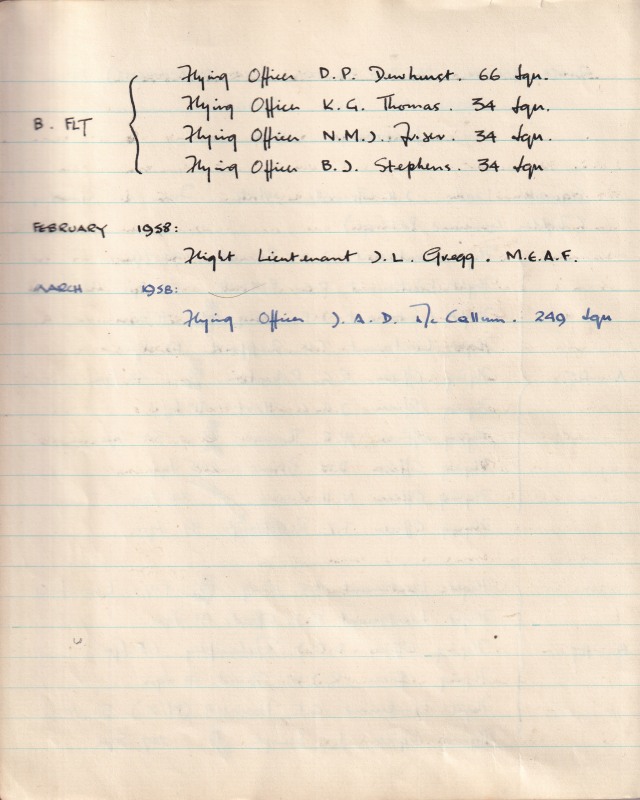 Flying Officer D.P. Dewhurst. 66 Sqn.
Flying Officer K.G. Thomas. 34 Sqn.
B. FLT
Flying Officer N.M.J. Fraser. 34 Sqn.
Flying Officer B.J. Stephens. 34 Sqn
FEBRUARY 1958:
Flight Lieutenant J.L. Gregg. M.E.A.F.
MARCH 1958:
Flying Officer J.A.D. McCallum. 249 Sqn